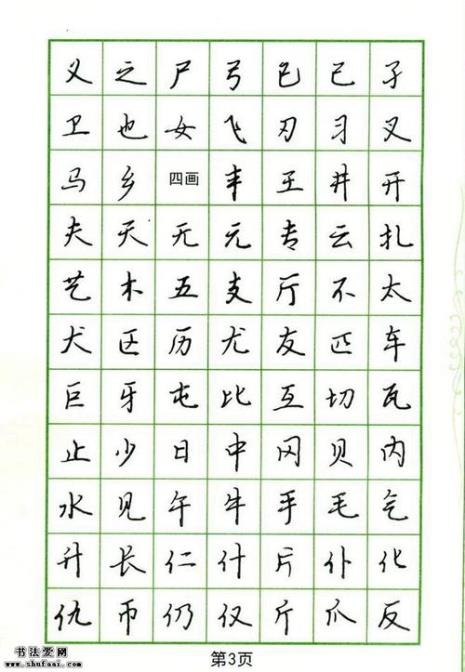 义之尸弓已己子
卫也女飞刃习叉
马乡四画丰王井开
夫天无元专云扎
艺木五支厅不太
犬区历尤友匹车
巨牙屯比互切瓦
止少日中冈贝内
水见午牛手毛气
升长仁什片仆化
仇币仍仅斤爪反
第3页
书法爱网
www.shufaai.com